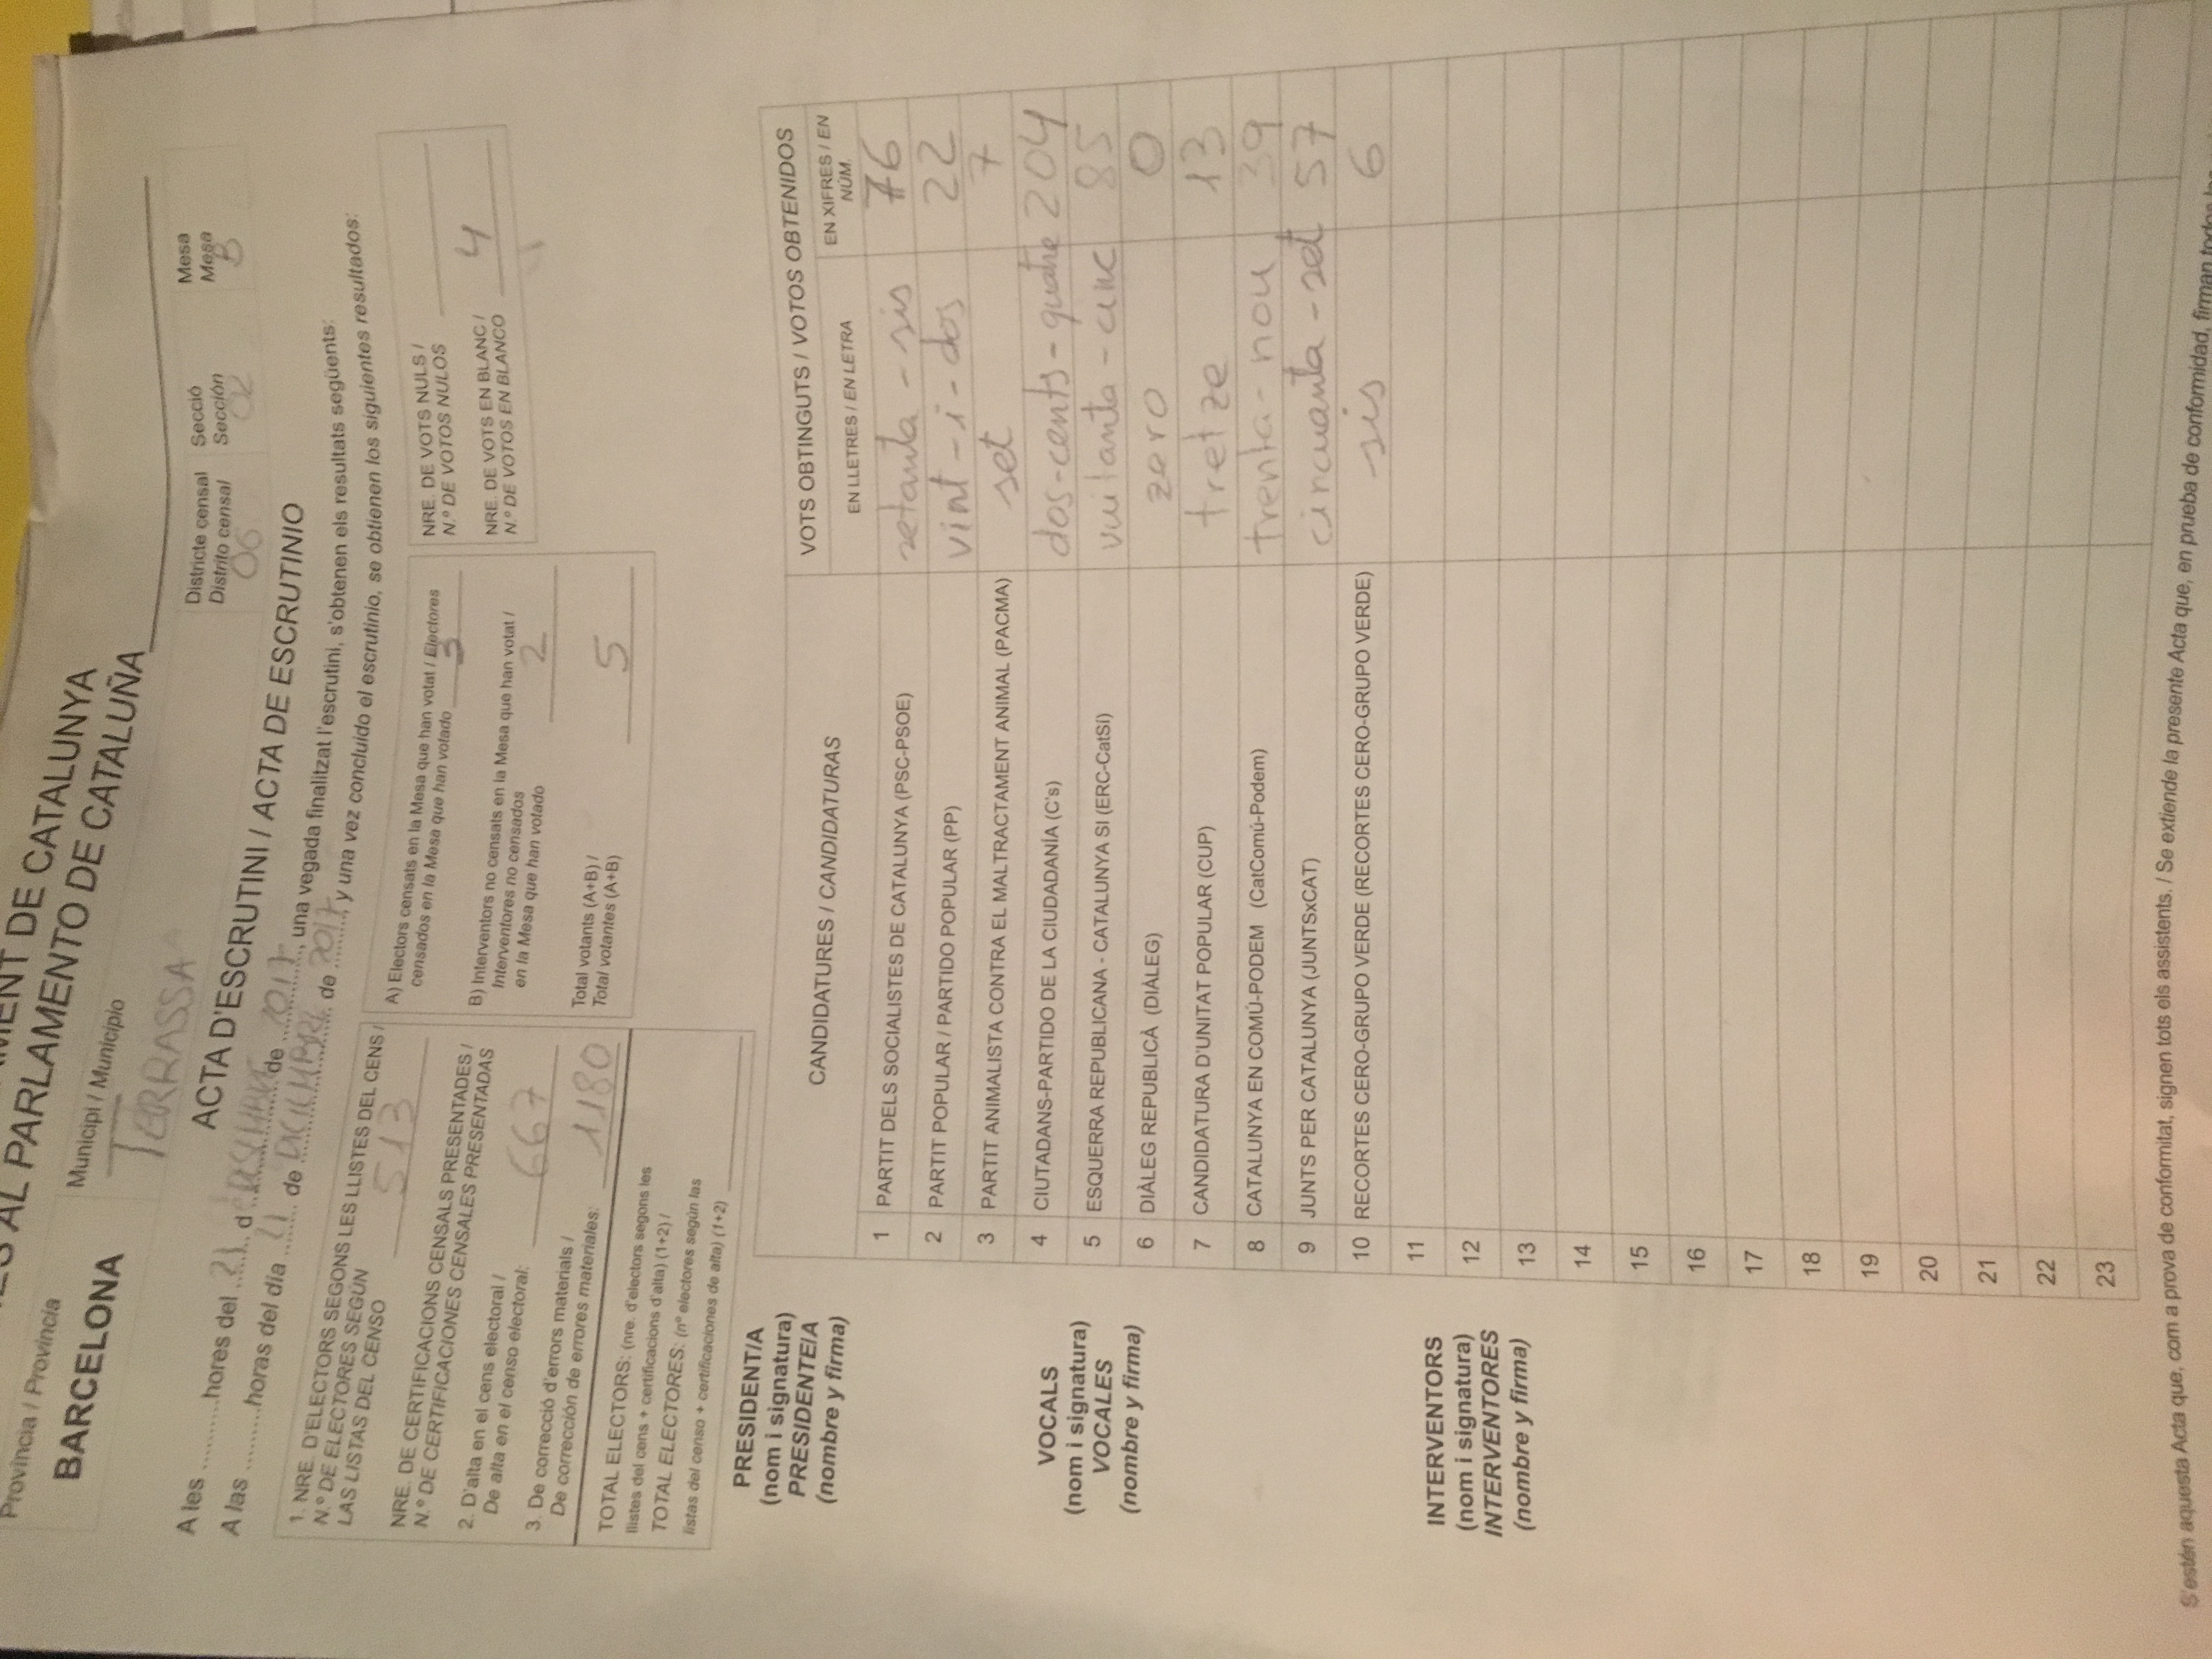 MENT DE CATALUNYA
ES AL PARLAMENTO DE CATALUÑA
Província / Provincia
BARCELONA
Municipi / Municipio
TERRASSA
Districte censal
Distrito censal
06
Secció
Sección
02
Mesa
Mesa
B
ACTA D'ESCRUTINI / ACTA DE ESCRUTINIO
A les ..........hores del 21 de DESEMBRE de 2017, una vegada finalitzat l'escrutini, s'obtenen els resultats següents:
A las .........horas del día 21 de DICIEMBRE de 2017, y una vez concluido el escrutinio, se obtienen los siguientes resultados:
1. NRE. D'ELECTORS SEGONS LES LLISTES DEL CENS /
N.º DE ELECTORES SEGÚN
LAS LISTAS DEL CENSO 513
NRE. DE CERTIFICACIONS CENSALS PRESENTADES /
N.º DE CERTIFICACIONES CENSALES PRESENTADAS
2. D'alta en el cens electoral /
De alta en el censo electoral: 667
3. De correcció d'errors materials /
De corrección de errores materiales: 1180
TOTAL ELECTORS: (nre. d'electors segons les
llistes del cens + certificacions d'alta) (1+2) /
TOTAL ELECTORES: (nº electores según las
listas del censo + certificaciones de alta) (1+2)
A) Electors censats en la Mesa que han votat / Electores
censados en la Mesa que han votado 3
B) Interventors no censats en la Mesa que han votat /
Interventores no censados
en la Mesa que han votado 2
Total votants (A+B) /
Total votantes (A+B) 5
NRE. DE VOTS NULS /
N.º DE VOTOS NULOS
NRE. DE VOTS EN BLANC /
N.º DE VOTOS EN BLANCO 4
PRESIDENT/A
(nom i signatura)
PRESIDENTE/A
(nombre y firma)
VOCALS
(nom i signatura)
VOCALES
(nombre y firma)
INTERVENTORS
(nom i signatura)
INTERVENTORES
(nombre y firma)
CANDIDATURES / CANDIDATURAS
VOTS OBTINGUTS / VOTOS OBTENIDOS
EN LLETRES / EN LETRA
EN XIFRES / EN
NÚM.
1 PARTIT DELS SOCIALISTES DE CATALUNYA (PSC-PSOE) setanta - sis 76
2 PARTIT POPULAR / PARTIDO POPULAR (PP) vint - i - dos 22
3 PARTIT ANIMALISTA CONTRA EL MALTRACTAMENT ANIMAL (PACMA) set 7
4 CIUTADANS-PARTIDO DE LA CIUDADANÍA (C's) dos-cents - quatre 204
5 ESQUERRA REPUBLICANA - CATALUNYA SI (ERC-CatSí) vuitanta - cinc 85
6 DIÀLEG REPUBLICÀ (DIÀLEG) zero 0
7 CANDIDATURA D'UNITAT POPULAR (CUP) tretze 13
8 CATALUNYA EN COMÚ-PODEM (CatComú-Podem) trenta - nou 39
9 JUNTS PER CATALUNYA (JUNTSxCAT) cincuanta - set 57
10 RECORTES CERO-GRUPO VERDE (RECORTES CERO-GRUPO VERDE) sis 6
11
12
13
14
15
16
17
18
19
20
21
22
23
S'estén aquesta Acta que, com a prova de conformitat, signen tots els assistents. / Se extiende la presente Acta que, en prueba de conformidad, firman todos